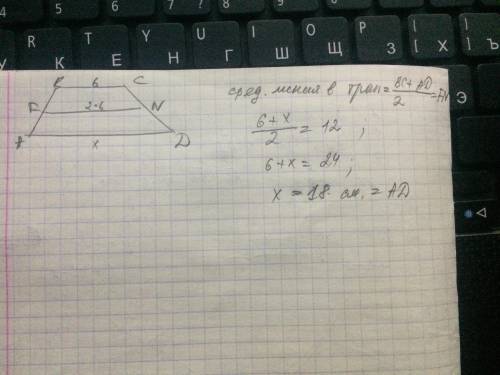 4 5 6 7 8 9 0
R К T Е Y Н U Г I Ш O Щ P З { [ Х } ] Ъ
Э
B 6 C
F 2·6 N
A x D
сред. линия в трап = BC + AD / 2 =
6+x / 2 = 12 ;
6+x = 24 ;
x = 18 см. = AD